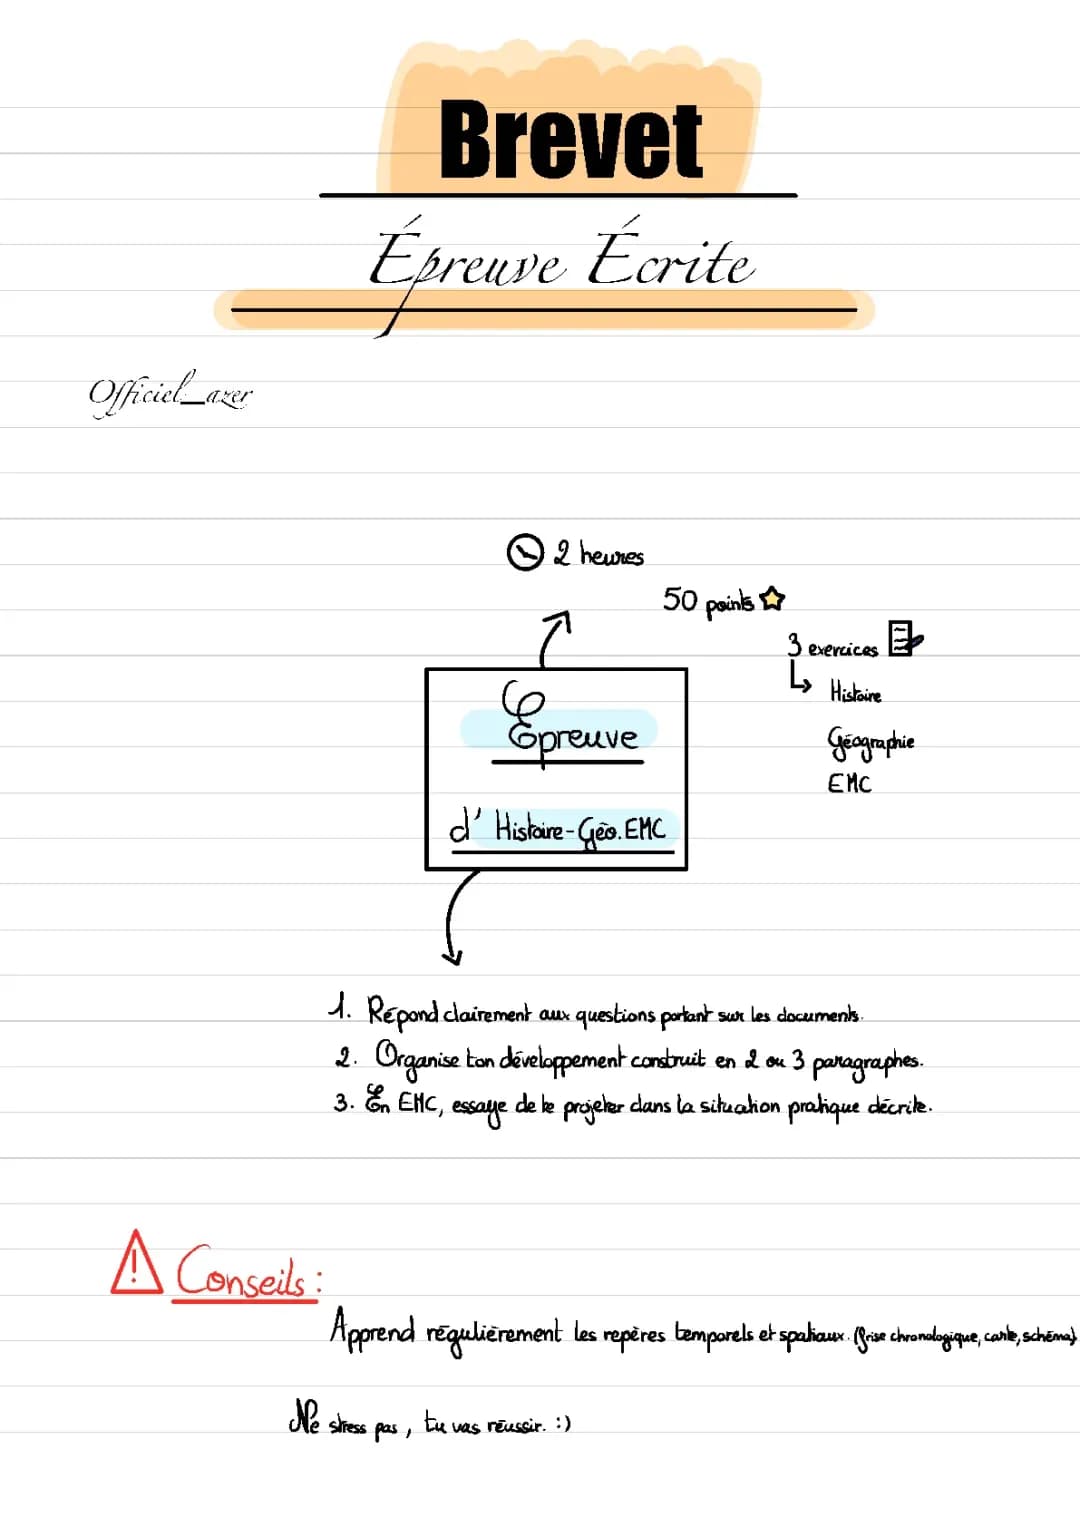 Brevet
Épreuve Écrite
Officiel_azer
2 heures
50 points
3 exercices
Histoire
Géographie
EMC
Épreuve
d'Histoire-Géo.EMC
1. Répond clairement aux questions portant sur les documents.
2. Organise ton développement construit en 2 ou 3 paragraphes.
3. En EMC, essaye de te projeter dans la situation pratique décrite.
Conseils :
Apprend régulièrement les repères temporels et spatiaux. (frise chronologique, carte, schéma)
Ne stress pas, tu vas réussir. :)